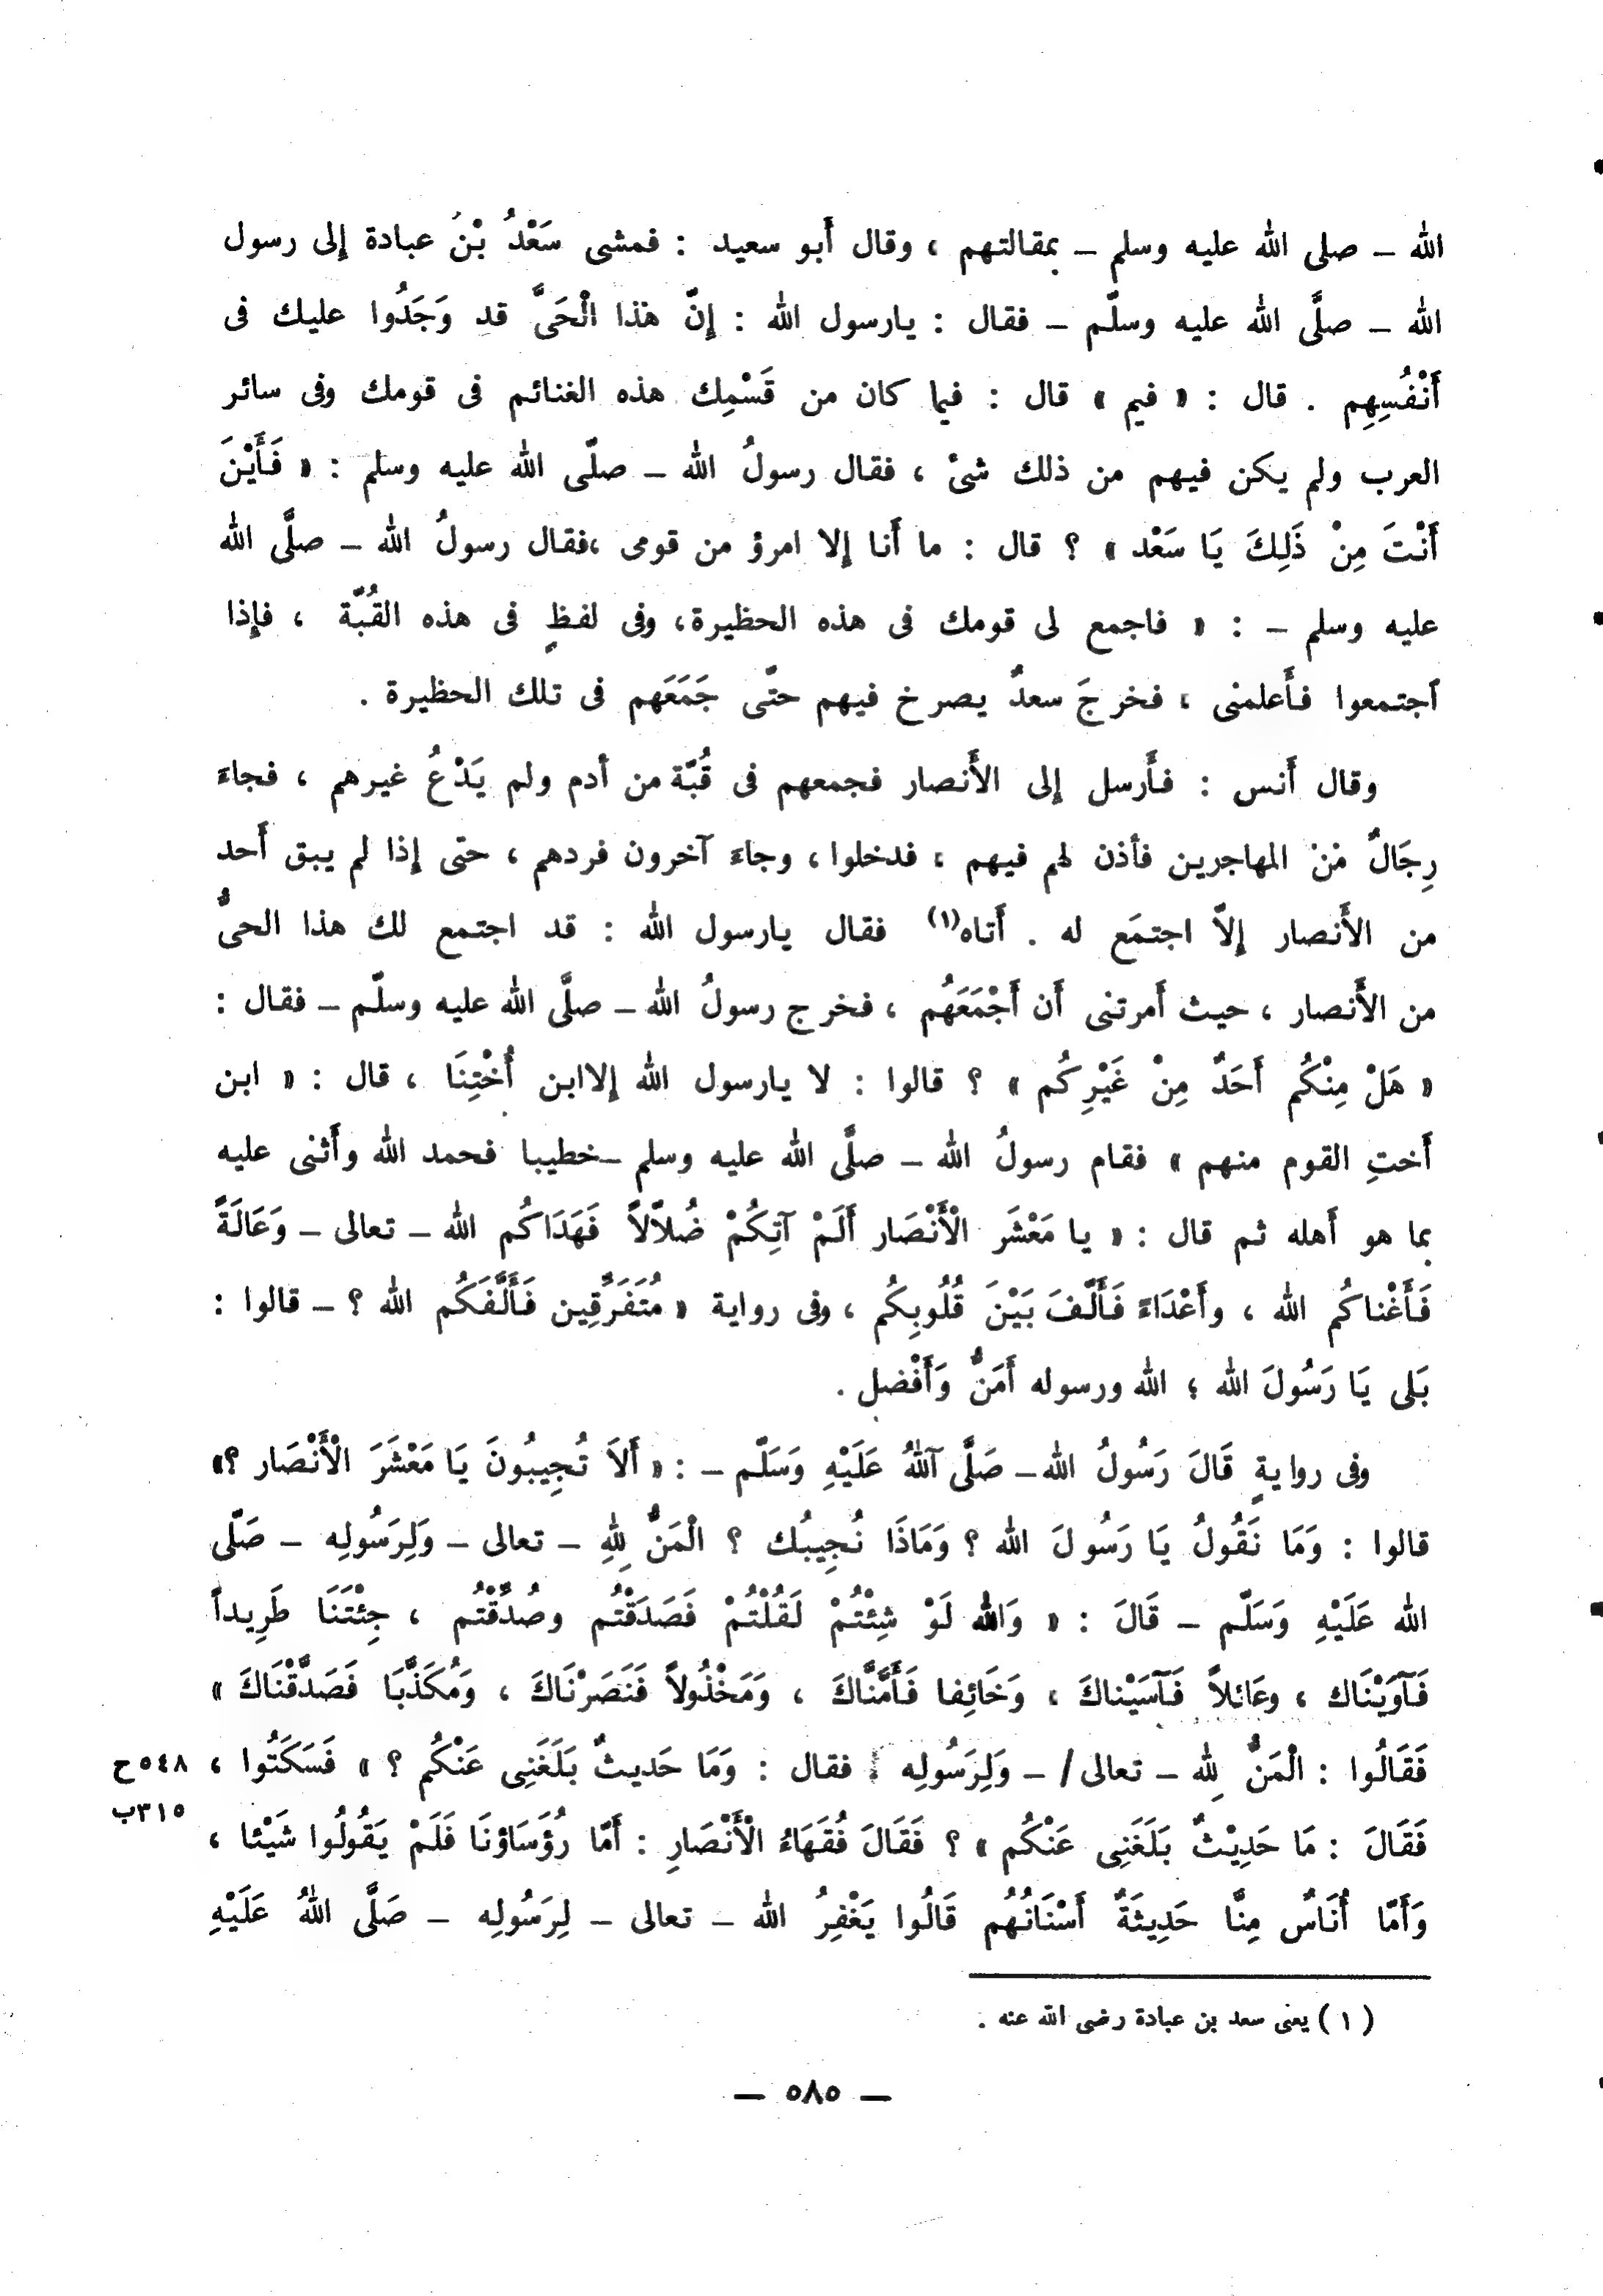 الله – صلى الله عليه وسلم – بمقالتهم ، وقال أَبو سعيد : فمشى سَعْدُ بْنُ عبادة إلى رسول
الله – صلَّى الله عليه وسلّم – فقال : يارسول الله : إِنّ هٰذا الْحَىَّ قد وَجَدُوا عليك فى
أَنْفُسِهِم . قال : « فيم » قال : فيما كان من قَسْمِك هذه الغنائم فى قومك وفى سائر
العرب ولم يكن فيهم من ذلك شىْ ، فقال رسولُ الله – صلّى الله عليه وسلم : « فَأَيْنَ
أَنْتَ مِنْ ذَلِكَ يَا سَعْد » ؟ قال : ما أَنا إلا امرؤ من قومى ،فقال رسولُ الله – صلَّى الله
عليه وسلم – : « فاجمع لى قومك فى هذه الحظيرة، وفى لفظٍ فى هذه القُبّة ، فإِذا
ٱجتمعوا فأَعلمنى ، فخرجَ سعدٌ يصرخ فيهم حتّى جَمَعَهم فى تلك الحظيرة .
وقال أَنس : فأَرسل إلى الأَنصار فجمعهم فى قُبّة من أدم ولم يَدْعُ غيرهم ، فجاءَ
رِجَالٌ مْنْ المهاجرين فأذن لهم فيهم ، فدخلوا ، وجاءَ آخرون فردهم ، حتى إذا لم يبق أَحد
من الأَنصار إلاّ اجتمَع له . أَتاه(١) فقال يارسول الله : قد اجتمع لك هذا الحىُّ
من الأَنصار ، حيث أَمرتنى أَن أَجْمَعَهُم ، فخرج رسولُ الله – صلَّى الله عليه وسلّم – فقال :
« هَلْ مِنْكُم أَحَدٌ مِنْ غَيْرِكُم » ؟ قالوا : لا يارسول الله إلاابن أُخْتِنَا ، قال : « ابن
أَختِ القوم منهم » فقام رسولُ الله – صلَّى الله عليه وسلم –خطيبا فحمد الله وأَثنى عليه
بما هو أَهله ثم قال : « يا مَعْشَر الْأَنْصَار أَلَمْ آتِكُمْ ضُلاَّلاً فَهَدَاكُم الله – تعالى – وَعَالَةً
فَأَغْناكُم الله ، وأَعْدَاءً فَأَلَّفَ بَيْنَ قُلُوبِكُم ، وفى رواية « مُتَفَرِّقِين فَأَلَّفَكُم الله ؟ – قالوا :
بَلى يَا رَسُولَ الله ؛ الله ورسوله أَمَنُّ وَأَفْضل .
وفى روايةٍ قَالَ رَسُولُ الله– صَلَّى ٱللهُ عَلَيْهِ وَسَلّم – : « أَلاَ تُجِيبُونَ يَا مَعْشَرَ الْأَنْصَار ؟»
قالوا : وَمَا نَقُولُ يَا رَسُولَ الله ؟ وَمَاذَا نُجِيبُك ؟ الْمَنُّ لِلهِ – تعالى – وَلِرَسُولِه – صَلّى
الله عَلَيْهِ وَسَلّم – قَالَ : « وَالله لَوْ شِئْتُمْ لَقُلْتُمْ فَصَدَقْتُم وصُدِّقْتُم ، جِئْتَنَا طَرِيداً
فَآوَيْنَاك ، وعَائلاً فَآسَيْناكَ ، وَخَائِفا فَأَمَّنَّاكَ ، وَمَخْذُولاً فَنَصَرْنَاكَ ، وَمُكَذَّبَا فَصَدَّقْنَاكَ »
فَقَالُوا : الْمَنُّ لِلهِ – تعالى/ – وَلِرَسُولِه ، فقال : وَمَا حَديثٌ بَلَغَنِى عَنْكُم ؟ » فَسَكَتُوا ، ٥٤٨ح
٣١٥ب
فَقَالَ : مَا حَدِيْثٌ بَلَغَنِى عَنْكُم » ؟ فَقَالَ فُقَهَاءُ الْأَنْصَارِ : أَمّا رُؤَسَاؤنَا فَلَمْ يَقُولُوا شَيْئا ،
وَأَمّا أُنَاسٌ مِنَّا حَدِيثَةٌ أَسْنَانُهُم قَالُوا يَغْفِرُ الله – تعالى – لِرَسُولِه – صَلَّى اللهُ عَلَيْهِ
( ١ ) يعنى سعد بن عبادة رضى الله عنه .
– ٥٨٥ –